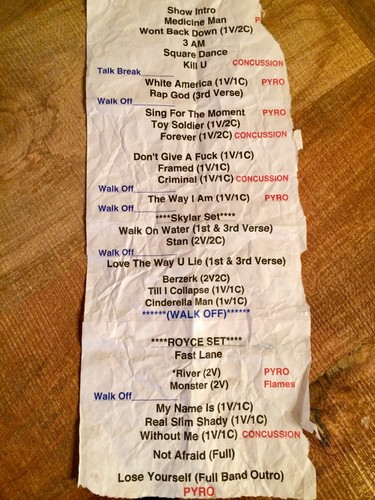 Show Intro
Medicine Man P
Wont Back Down (1V/2C)
3 AM
Square Dance
Kill U CONCUSSION
Talk Break
White America (1V/1C) PYRO
Rap God (3rd Verse)
Walk Off
Sing For The Moment PYRO
Toy Soldier (1V/2C)
Forever (1V/2C) CONCUSSION
Don't Give A Fuck (1V/1C)
Framed (1V/1C)
Criminal (1V/1C) CONCUSSION
Walk Off
The Way I Am (1V/1C) PYRO
Walk Off
****Skylar Set****
Walk On Water (1st & 3rd Verse)
Stan (2V/2C)
Walk Off
Love The Way U Lie (1st & 3rd Verse)
Berzerk (2V2C)
Till I Collapse (1V/1C)
Cinderella Man (1v/1C)
******(WALK OFF)******
****ROYCE SET****
Fast Lane
*River (2V) PYRO
Monster (2V) Flames
Walk Off
My Name Is (1V/1C)
Real Slim Shady (1V/1C)
Without Me (1V/1C) CONCUSSION
Not Afraid (Full)
Lose Yourself (Full Band Outro)
PYRO